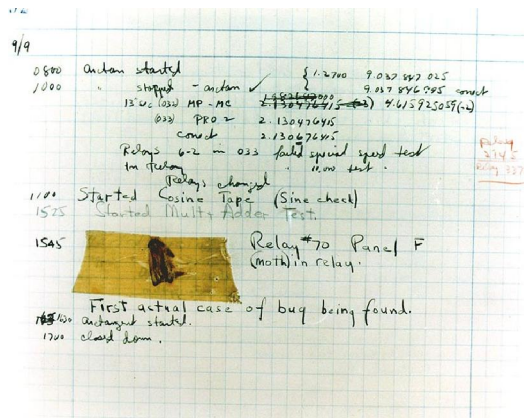 9/9
0800 antan started { 1.2700 9.037 847 025
1000 " stopped - antan ✓ 9.037 846 995 conect
13"uc (032) MP - MC 2.130476415 4.615925059(-2)
(033) PRO 2 2.130476415
conect 2.130676415
Relays 6-2 in 033 failed special speed test
in Relay " 11.000 test.
Relay
2145
Relay 337
Relays changed
1100 Started Cosine Tape (Sine check)
1525 Started Multi Adder Test.
1545 Relay #70 Panel F
(moth) in relay.
First actual case of bug being found.
1630 antangent started.
1700 closed down.